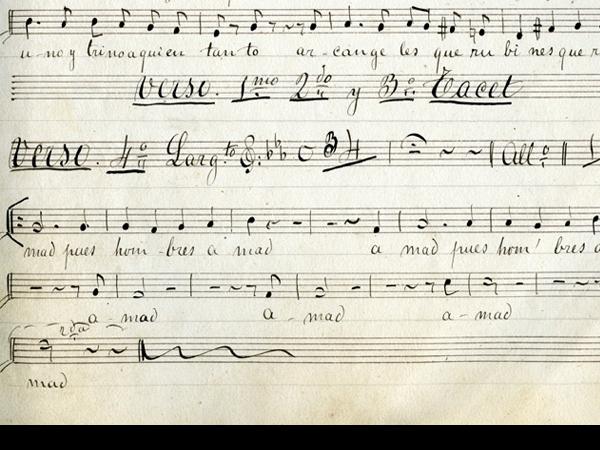 u-no y trino a quien tan to ar-cange les que ru bi nes que r
Verso. 1mo 2do y 3o. Tacet
Verso. 4o Larg.to C 34 All.o
mad pues hom-bres a mad a mad pues hom' bres a
a-mad a-mad a-mad
2da
mad